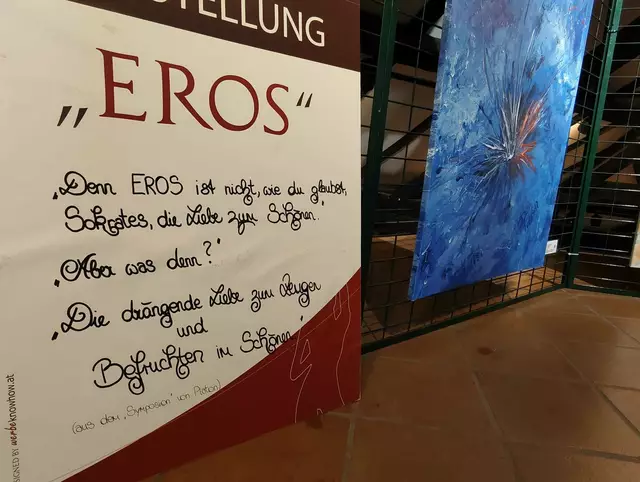 STELLUNG
„EROS“
„Denn EROS ist nicht, wie du glaubst,
Sokrates, die Liebe zum Schönen.“
„Aber was denn?“
„Die drängende Liebe zum Zeugen
und
Befruchten im Schönen.“
(aus dem „Symposion“ von Platon)
SIGNED BY werbeknowhow.at